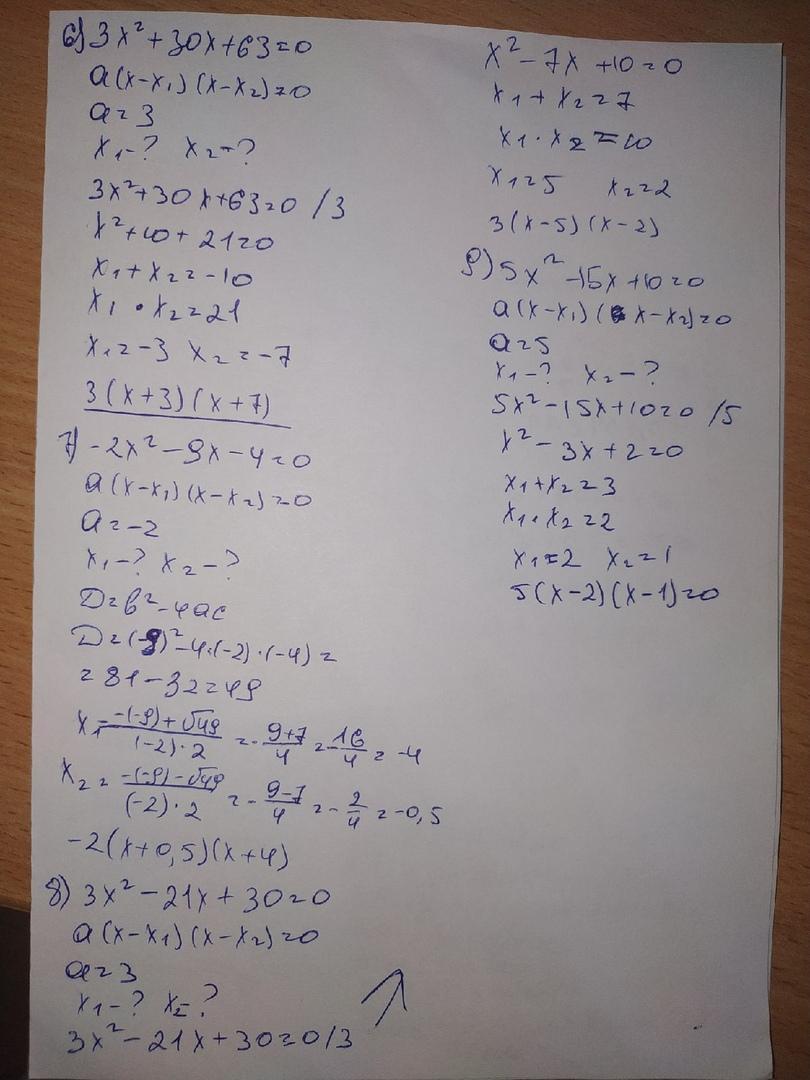 6) 3x² + 30x + 63 = 0
a(x-x₁)(x-x₂) = 0
a = 3
x₁ - ? x₂ - ?
3x² + 30x + 63 = 0 /3
x² + 10 + 21 = 0
x₁ + x₂ = -10
x₁ · x₂ = 21
x₁ = -3 x₂ = -7
3(x+3)(x+7)
7) -2x² - 9x - 4 = 0
a(x-x₁)(x-x₂) = 0
a = -2
x₁ - ? x₂ - ?
D = b² - 4ac
D = (-9)² - 4·(-2)·(-4) =
= 81 - 32 = 49
x₁ = (-(-9)+√49)/((-2)·2) = -(9+7)/4 = -16/4 = -4
x₂ = (-(-9)-√49)/((-2)·2) = -(9-7)/4 = -2/4 = -0,5
-2(x+0,5)(x+4)
8) 3x² - 21x + 30 = 0
a(x-x₁)(x-x₂) = 0
a = 3
x₁ - ? x₂ - ?
3x² - 21x + 30 = 0 /3
x² - 7x + 10 = 0
x₁ + x₂ = 7
x₁ · x₂ = 10
x₁ = 5 x₂ = 2
3(x-5)(x-2)
9) 5x² - 15x + 10 = 0
a(x-x₁)(x-x₂) = 0
a = 5
x₁ - ? x₂ - ?
5x² - 15x + 10 = 0 /5
x² - 3x + 2 = 0
x₁ + x₂ = 3
x₁ · x₂ = 2
x₁ = 2 x₂ = 1
5(x-2)(x-1) = 0